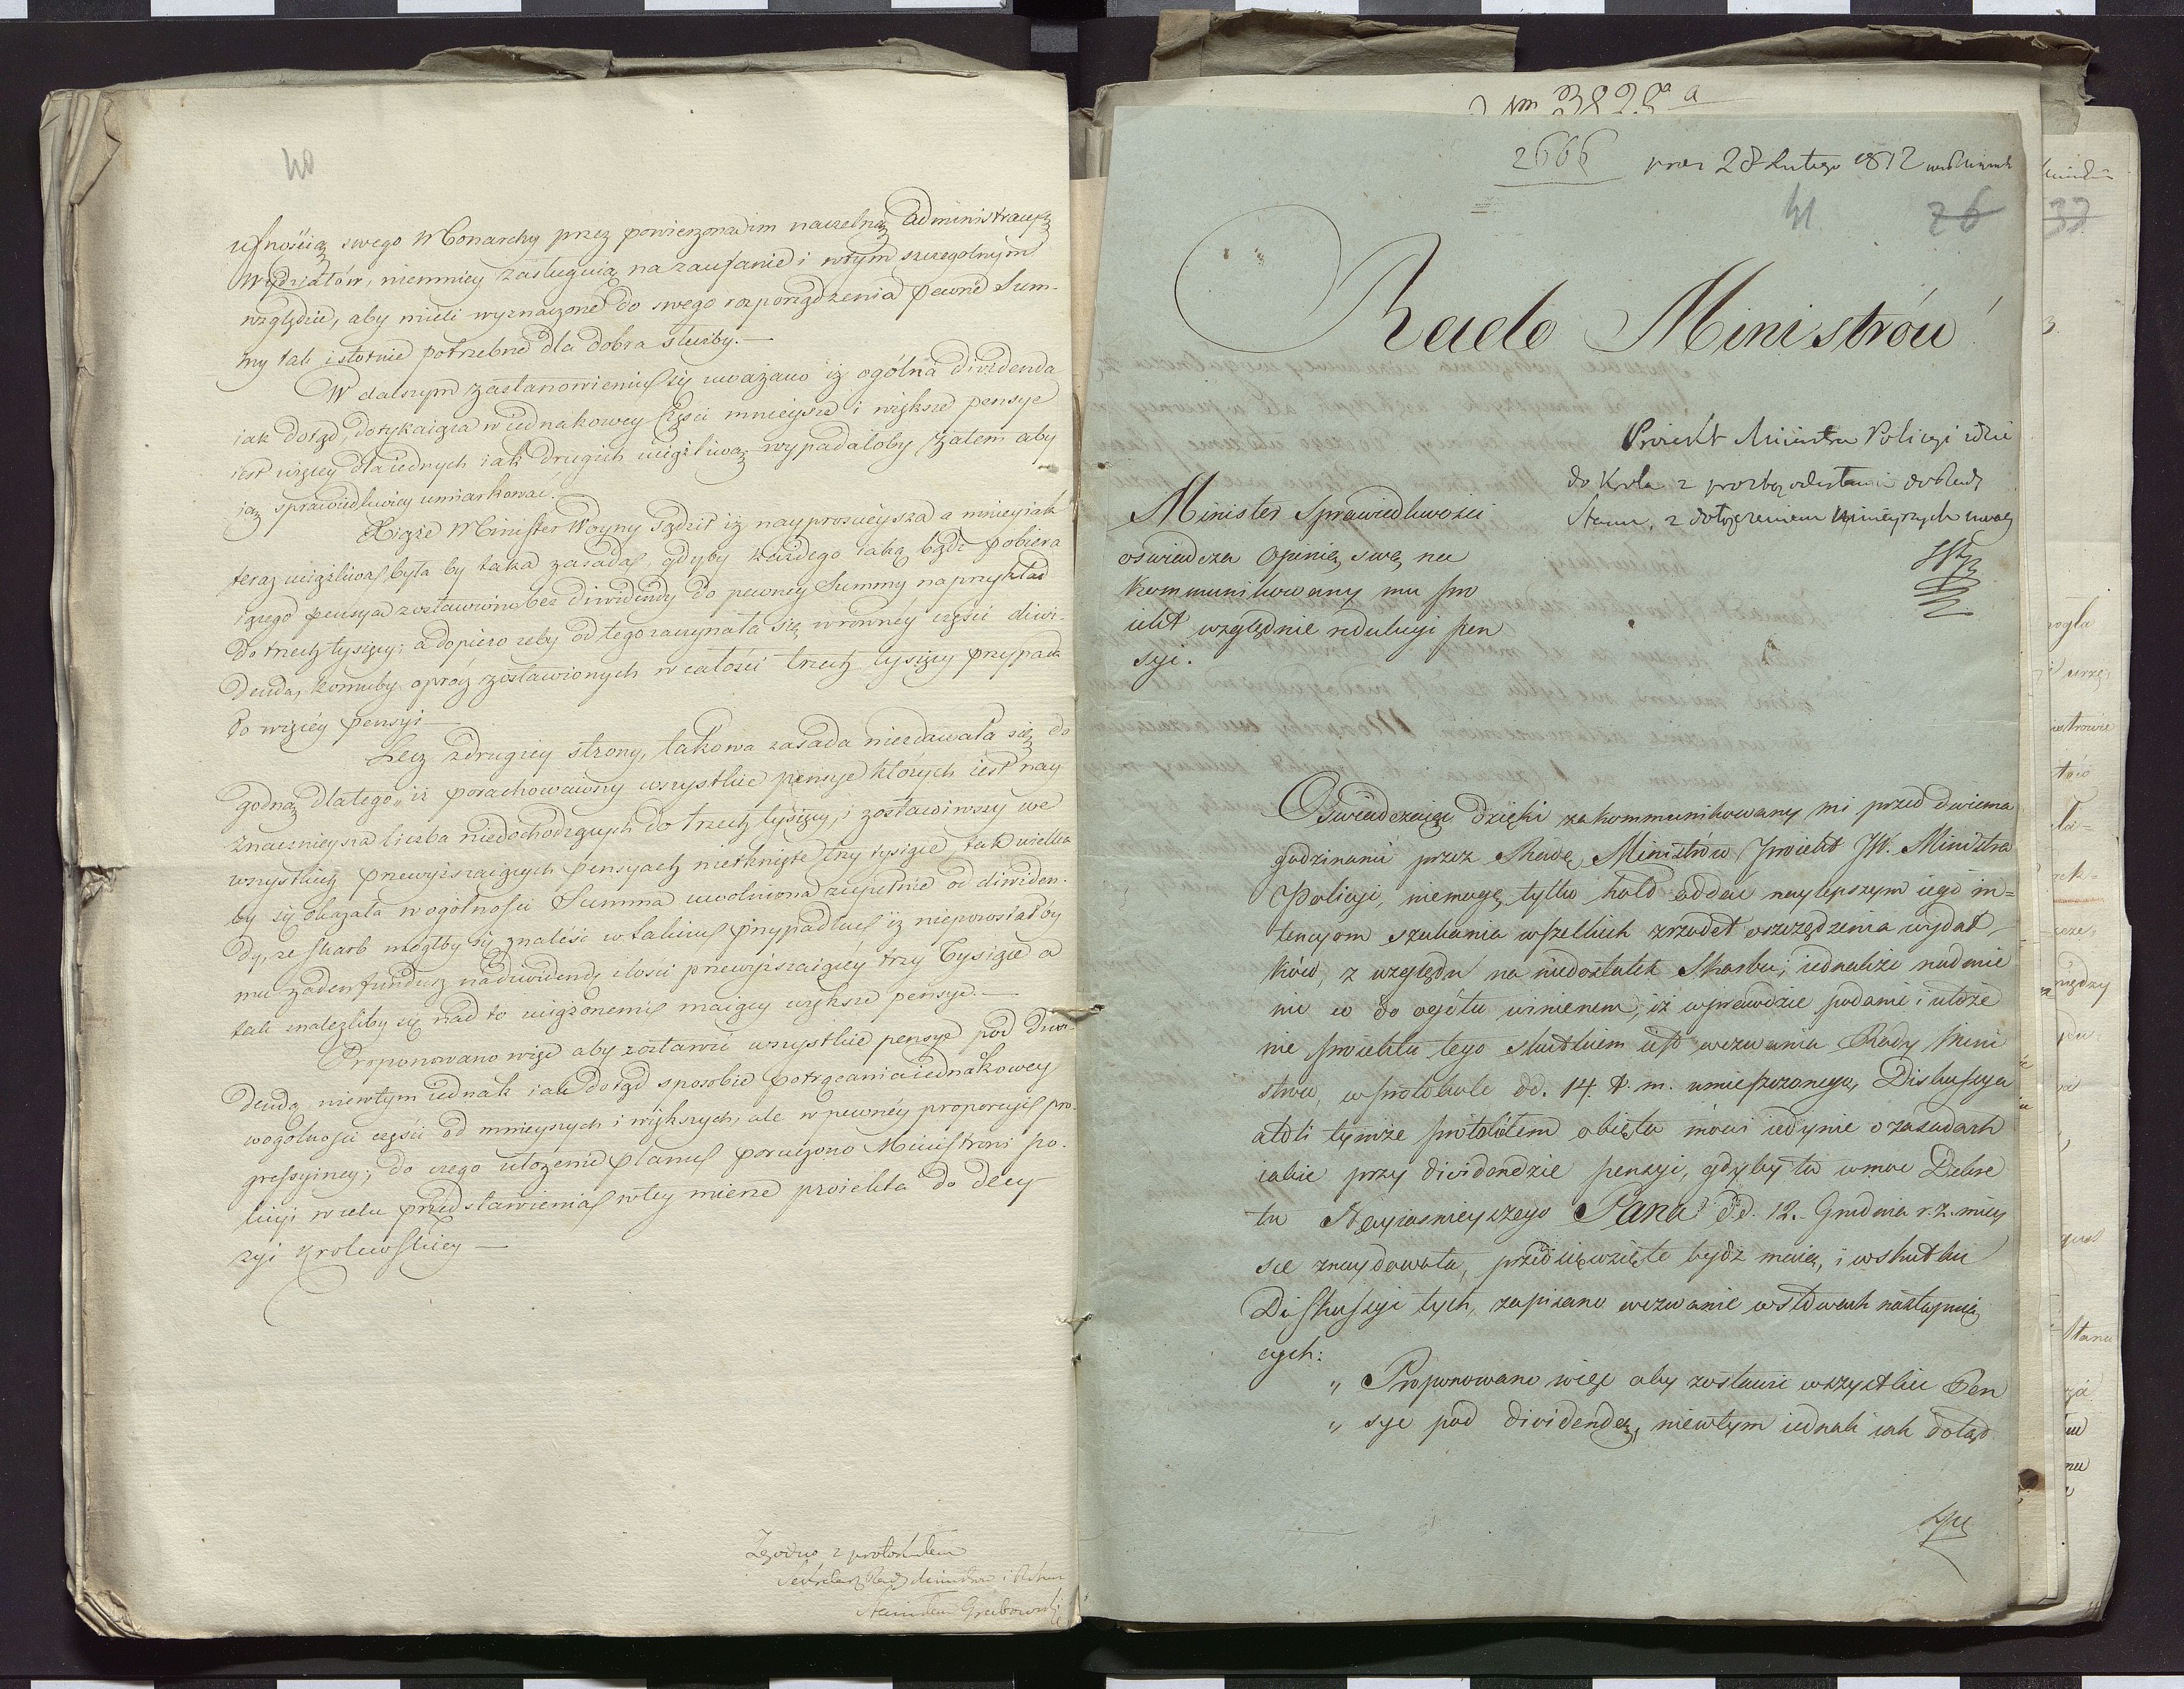 40
ufnością swego Monarchy przez powierzoną im naczelną Administracyą
Wydziałów, niemniey zasługuią na zaufanie i w tym szczególnym
względzie, aby mieli wyznaczone do swego rozporządzenia pewne Sum-
my tak istotnie potrzebne dla dobra służby.—
W dalszym zastanowieniu się uważano iż ogólna dividenda
iak dotąd, dotykaiąca w iednakowey części mnieysze i większe pensye
iest więcey dla iednych iak drugich uciążliwą wypadałoby zatem aby
ią sprawiedliwiey umiarkować.
Xiąże Minister Woyny sądził iż nayprościeysza a mniey iak
teraz uciążliwa, byłaby taka zasada, gdyby każdego iaką bądź pobiera
iącego pensya zostawiono bez dividendy do pewney Summy naprzykład
do trzech tysięcy; a dopiero żeby od tego zaczynała się w równéy części divi-
denda, komuby oprócz zostawionych w całości trzech tysięcy przypada
ło więcéy pensyi—
Lecz z drugiey strony, takowa zasada niezdawała się do
godną dlatego, iż porachowawszy wszystkie pensye których iest nay
znacznieysza liczba niedochodzących do trzech tysięcy, i zostawiwszy we
wszystkich przewyższaiących pensyach nietknięte trzy tysiące, tak wielka
by się okazała w ogólności Summa uwolniona zupełnie od dividen-
dy, że skarb mógłby się znaleść w takim przypadku iż niepozostałby
mu żaden fundusz na dividendę ilości przewyższaiącéy trzy tysiące a
tak znaleźliby się nad to uciążonemi maiący większe pensye.—
Proponowano więc aby zostawić wszystkie pensye pod divi-
dendą niewtym iednak iak dotąd sposobie potrącania iednakowey
w ogólności części od mnieyszych i większych, ale w pewnéy proporcyi pro-
gressyiney; do czego ułożenie planu poruczono Ministrowi Po-
licyi w celu przedstawienia w tey mierze proiektu do decy
zyi Królewskiey—
Zgodno z protokułem
Sekretarz Rady Ministrów i Stanu
Stanisław Grabowski
2666
prez 28 Lutego 1812
41
26
Rada Ministrów
Proiekt Ministra Policyi idzie
do Króla z prozbą odesłania do Rady
Stanu, z dołączeniem ninieyszych uwag
Minister Sprawiedliwości
oświadcza Opinią swą na
kommunikowany mu pro
iekt względnie redukcyi pen
syi.
Oświadczaiąc dzięki za kommunikowany mi przed dwiema
godzinami przez Radę Ministrów proiekt JW. Ministra
Policyi, niemogę tylko hołd oddać naylepszym iego in=
tencyom szukania wszelkich zrzódeł oszczędzenia wydat-
ków, z względu na niedostatek Skarbu; iednakże nadmie
nić co do ogółu winienem, iż wprawdzie podanie i ułoże
nie proiektu tego skutkiem iest wezwania Rady Mini
strów, w protokule dd. 14. t. m. umieszczonego, Diskussya
atoli tymże protokułem obięta mówi iedynie o zasadach
iakie przy dividendzie pensyi, gdyby ta w moc Dekre
tu Nayiaśnieyszego Pana d.d. 12. Grudnia r. z. miey
sce znaydowała, przedsięwzięte bydź maią, i w skutku
Diskussyi tych, zapisano wezwanie w słowach następuią
cych:
„ Proponowano więc aby zostawić wszystkie Pen
„ sye pod dividendą, niewtym iednak iak dotąd
33